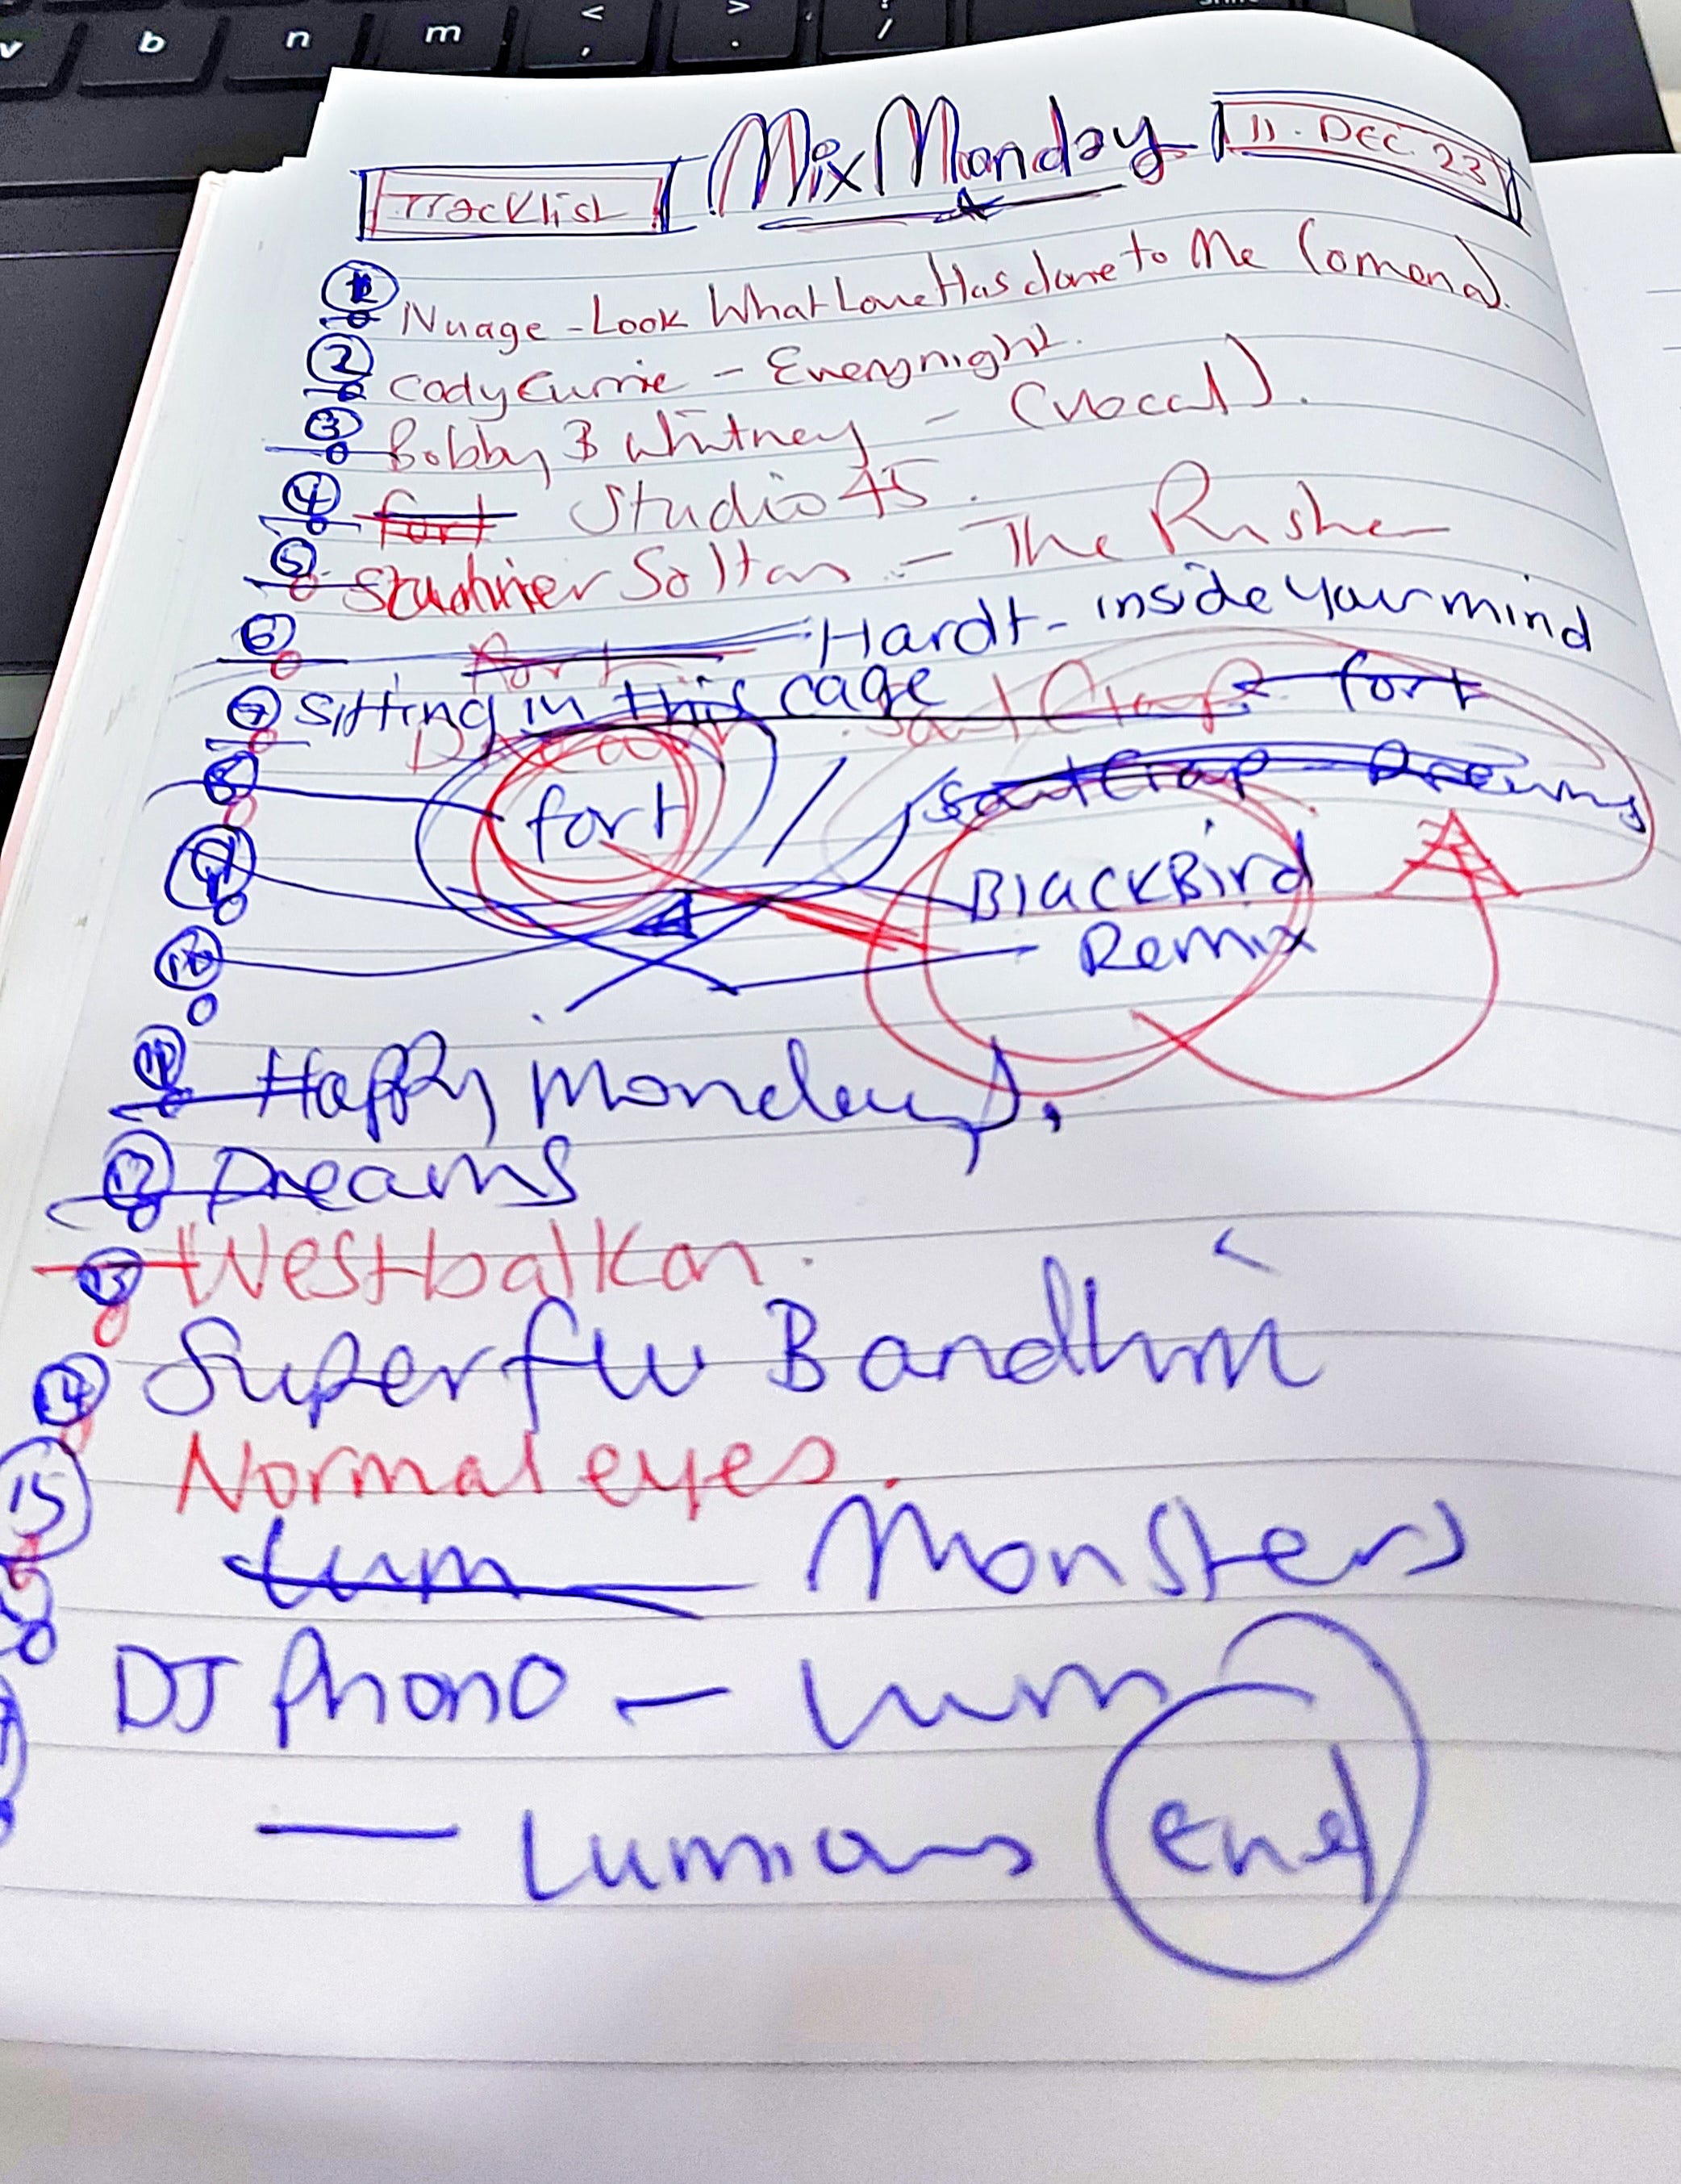 v b n m < , > . ? /
Tracklist Mix Monday 11. DEC. 23
1 Nuage - Look What Love Has done to Me (omena).
2 Cody Currie - Everynight.
3 Bobby B Whitney - (vocal).
4 fort Studio 45.
5 Soltan - The Pusher
6 fort Hardt - inside your mind
7 sitting in this cage fort
8 fort / Dreams
9 BlackBird
10 Remix
11 Happy Mondays.
12 Dreams
13 Westbalkan.
14 Superflu
15 Normal eyes.
Lum Monsters
DJ Phono - Lum
- end